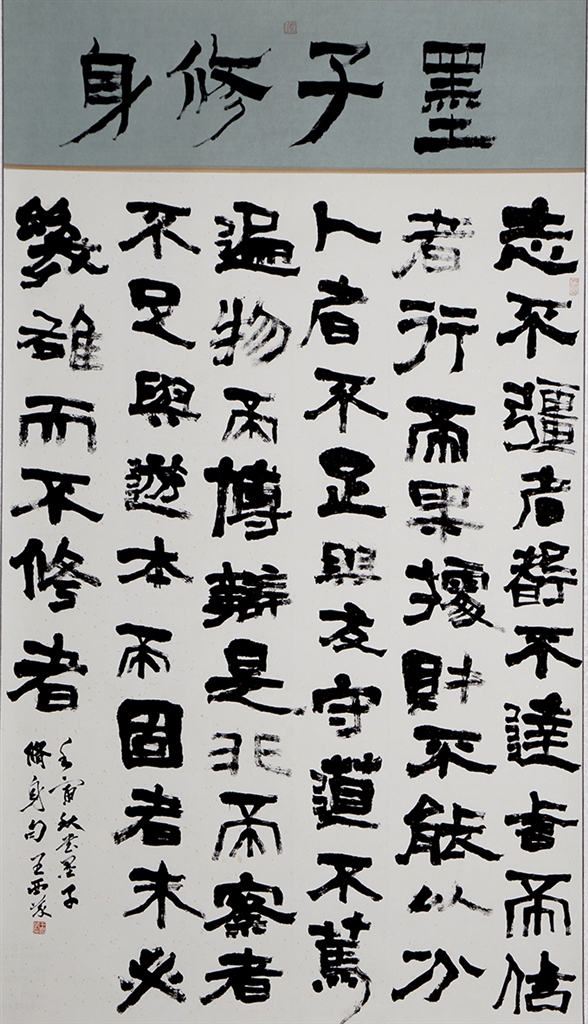 墨子修身
志不彊者智不達言不信
者行不果據財不能以分
人者不足與友守道不篤
遍物不博辯是非不察者
不足與遊本不固者末必
幾雄而不修者
壬寅秋書墨子
脩身句王西